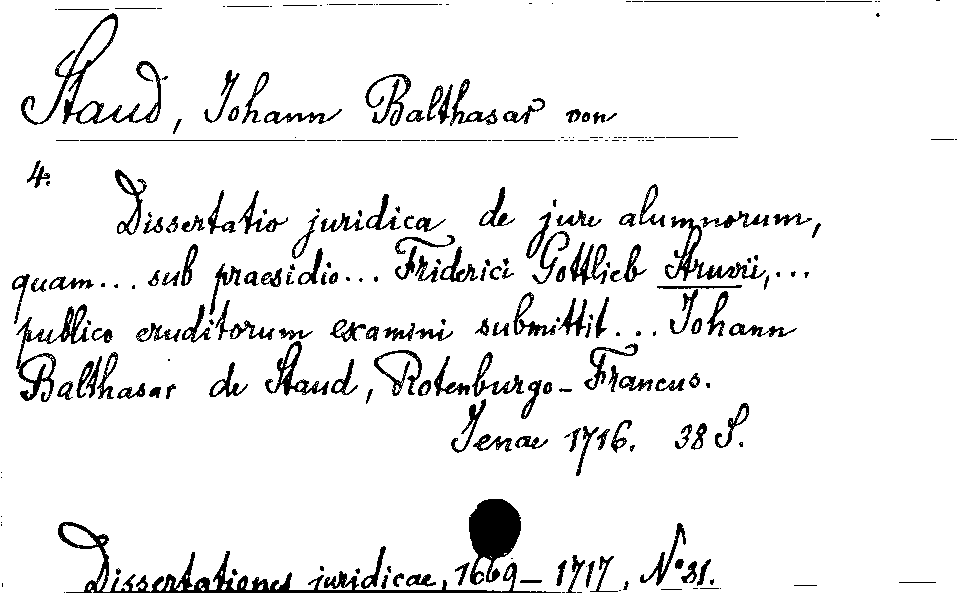 Staud, Johann Balthasar von
4.
Dissertatio juridica de jure alumnorum,
quam... sub praesidio... Friderici Gottlieb Struvii,...
publico eruditorum examini submittit... Johann
Balthasar de Staud, Rotenburgo-Francus.
Jenae 1716. 38 S.
Dissertationes juridicae, 1669-1717, No 31.